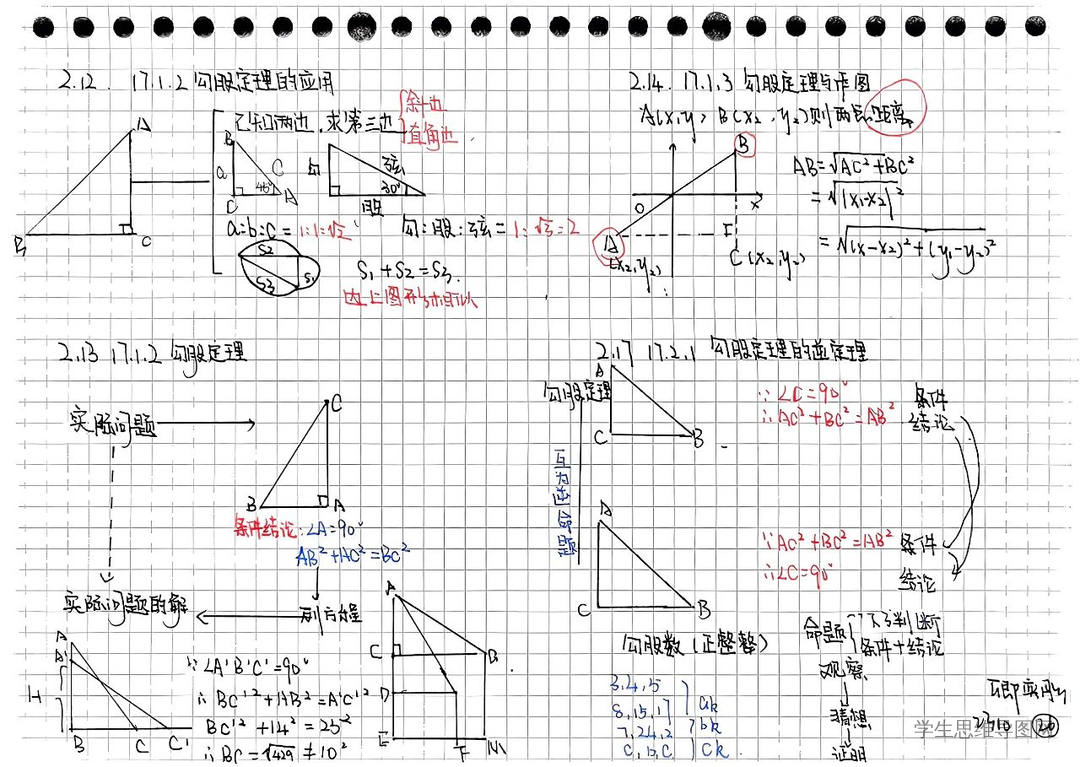 2.12. 17.1.2 勾股定理的应用
已知两边,求第三边 {斜边 直角边
A
B
C
B
a
C
45°
C
A
勾
弦
30°
股
a:b:c=1:1:√2
勾:股:弦=1:√3:2
S2
S1
S3
S₁+S₂=S₃
2.14. 17.1.3 勾股定理与作图
A(x,y) B(x₂,y₂)则两点距离
B
AB=√AC²+BC²
=√|x₁-x₂|²
=√(x-x₂)²+(y₁-y₂)²
O
x
A
F
(x₂,y₂)
C(x₂,y₂)
2.13 17.1.2 勾股定理
实际问题
C
B
A
条件结论:∠A=90°
AB²+AC²=BC²
列方程
实际问题的解
A
A'
H
B
C
C'
∵∠A'B'C'=90°
∴BC'²+AB²=A'C'²
BC'²+14²=25²
∴BC=√429≠10²
A
C
B
D
E
F
M
2.17 17.2.1 勾股定理的逆定理
勾股定理
A
C
B
∵∠C=90° 条件
∴AC²+BC²=AB² 结论
互为逆命题
A
C
B
∵AC²+BC²=AB² 条件
∴∠C=90° 结论
勾股数(正整整)
3,4,5
8,15,17
7,24,2
C,12,C
ak
bk
ck.
命题
判断
条件+结论
观察
猜想
证明
学生思维导图网